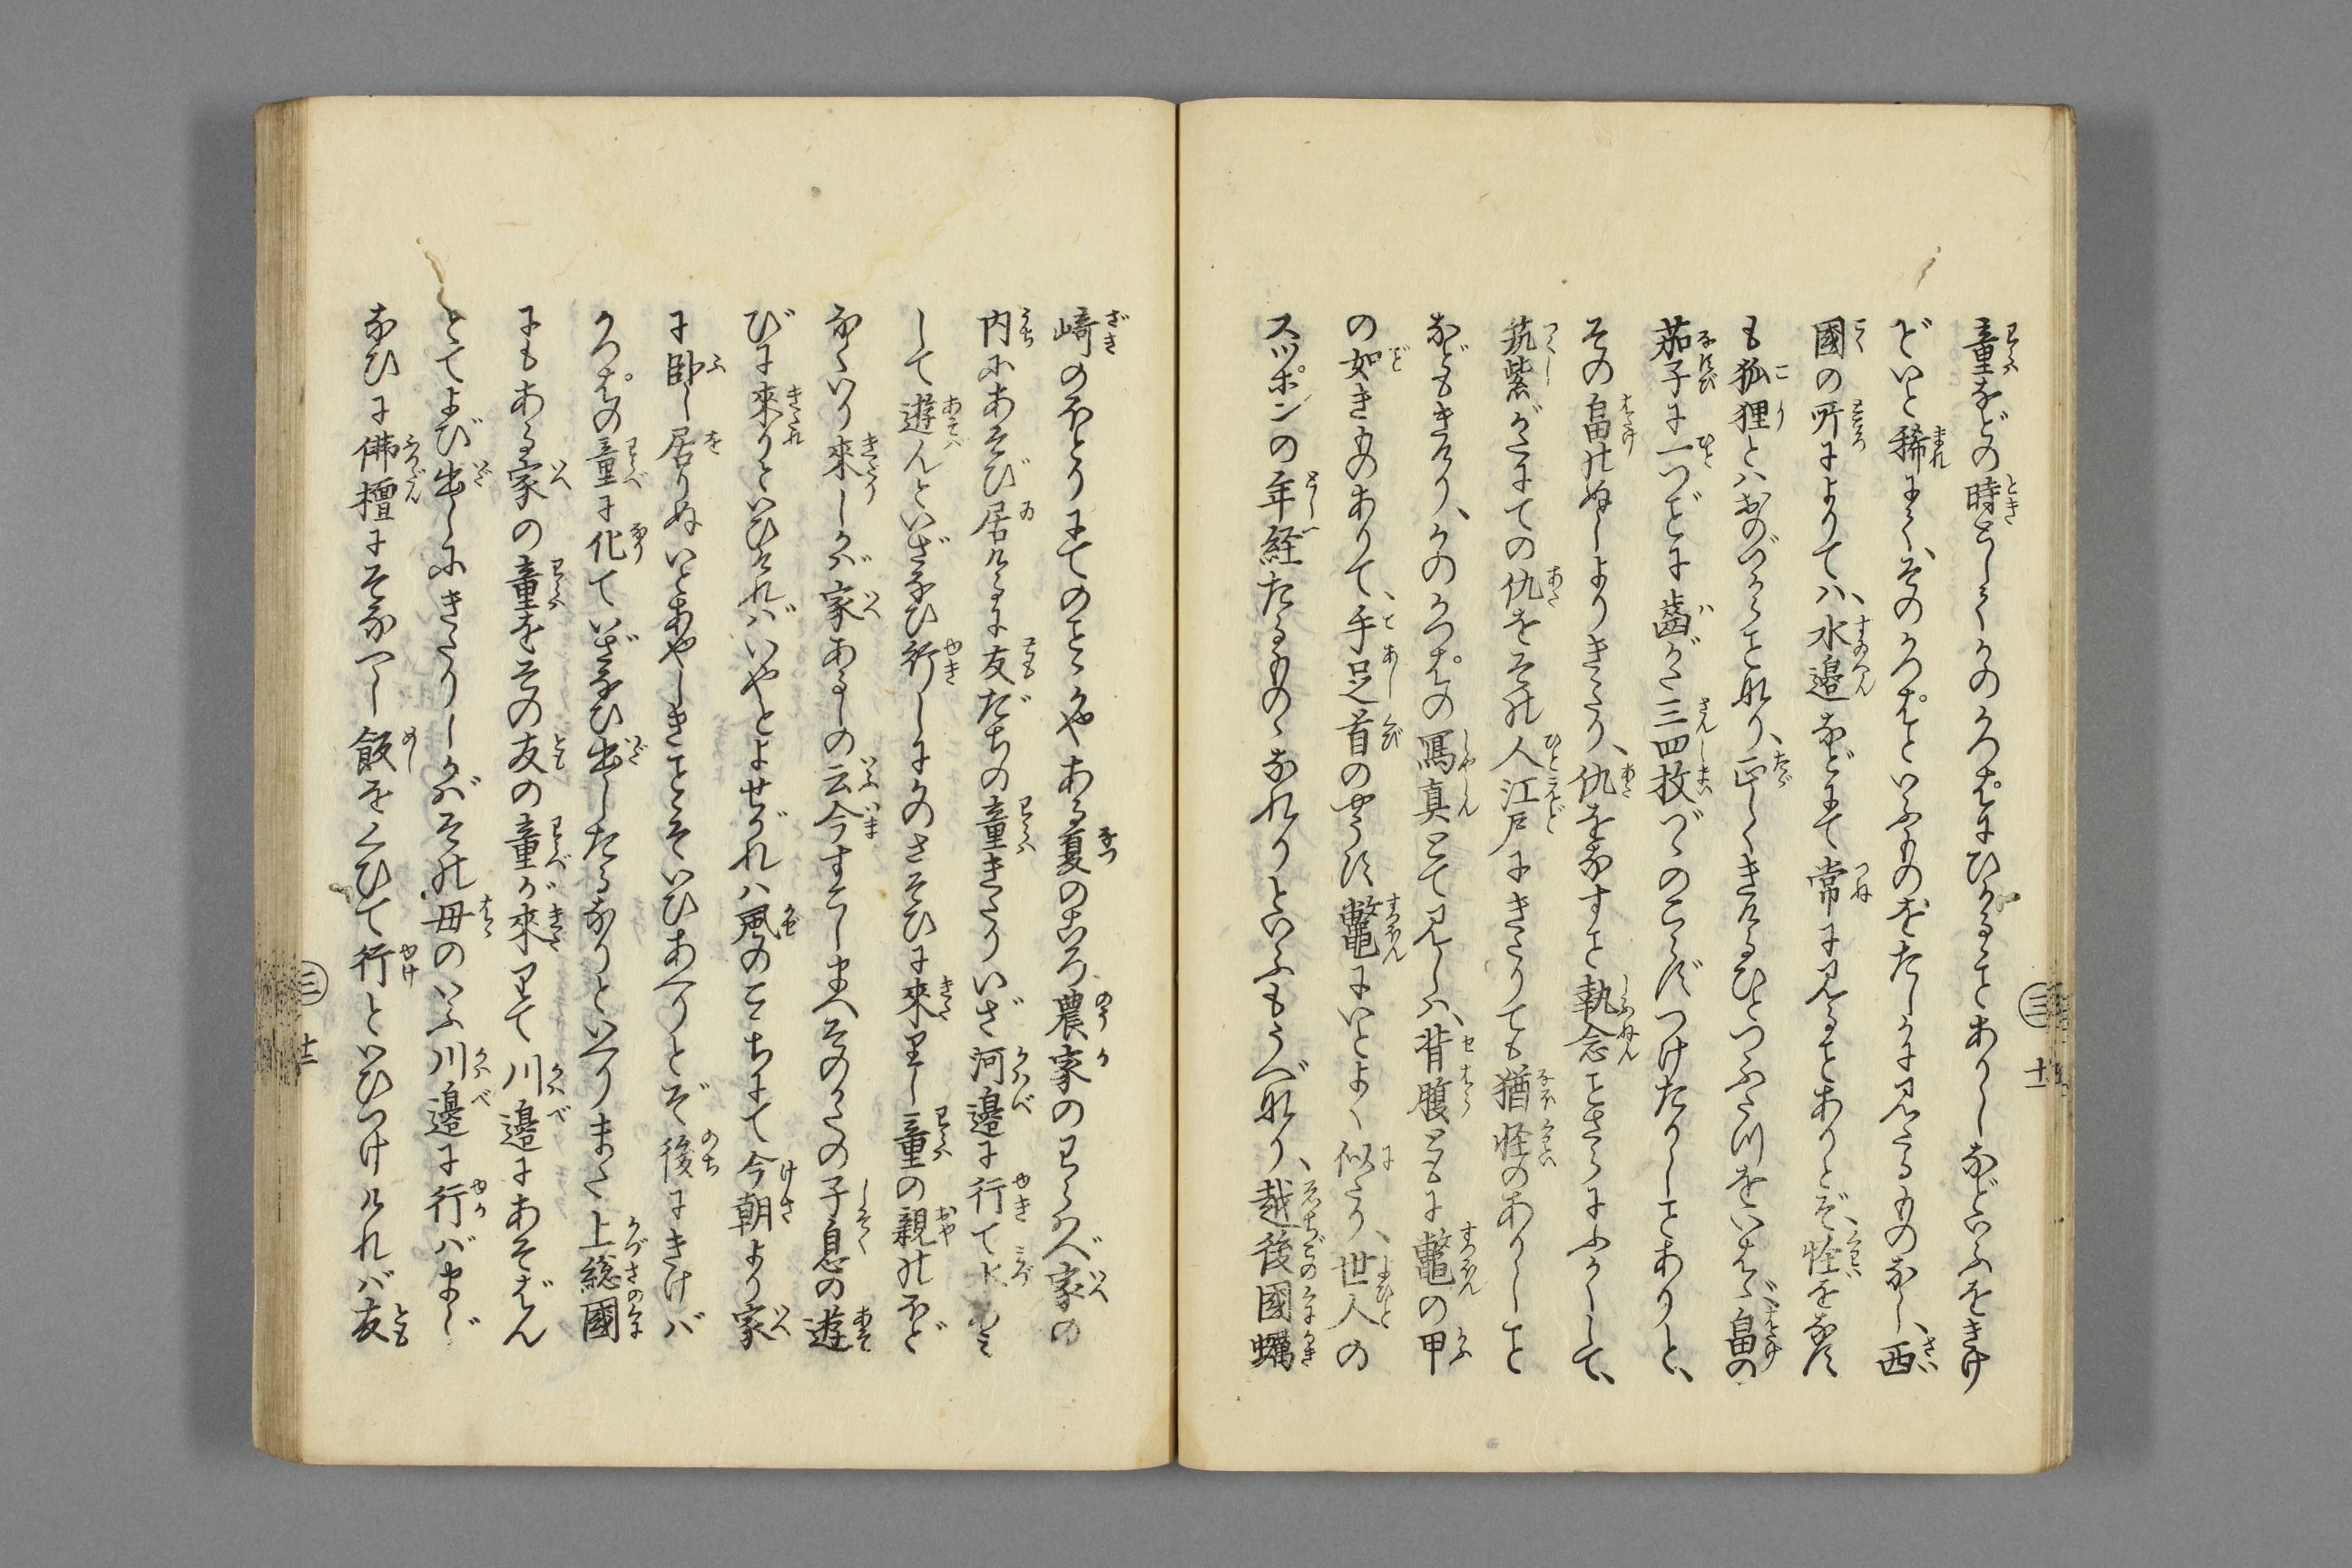 童などの時としてかのかつぱにひかるゝことありしなどいふをきけ
どいと稀にて、そのかつぱといふものをたしかに見たるものなし、西
國の所によりては、水邉などにて常に見ることありとぞ、怪をなす
も狐狸とはおのづからこと也、正しくきけるひとつふたつをいはゞ、畠の
茄子に一つごとに歯がた三四枚づゝのこらずつけたりしことありと、
その畠のぬしよりきたり、仇をなすこと執念ことさらにふかくして、
筑紫がたにての仇をその人江戸にきたりても猶怪のありしこと
などもきけり、かのかつぱの写真とて見しは、背腹ともに鼈の甲
の如きものありて、手足首のやうす鼈にいとよく似たり、世人の
スッポンの年経たるものゝなれりといふもうべ也、越後國蠣
崎のほとりにてのことゝかやある夏のころ農家のわらはべ家の
内にあそび居けるに友だちの童きたりいざ河邉に行て水あみ
して遊んといざなひ行しにかのさそひに來りし童の親のほど
なくいり來しかば家あるじの云今すこしまへそのかたの子息の遊
びに來りといひければいやとよせがれハ風のこゝちにて今朝より家
に臥し居りぬいとあやしきことゝそいひあへりとぞ後にきけば
かつぱの童に化ていざなひ出したるなりといへりまた上総國
にもある家の童をその友の童が來りて川邉にあそばん
とてよび出しにきたりしかばその母のいふ川邉に行かばまづ
なひに佛檀にそなへし飯をくひて行といひつけければ友
三 十一
三 十二